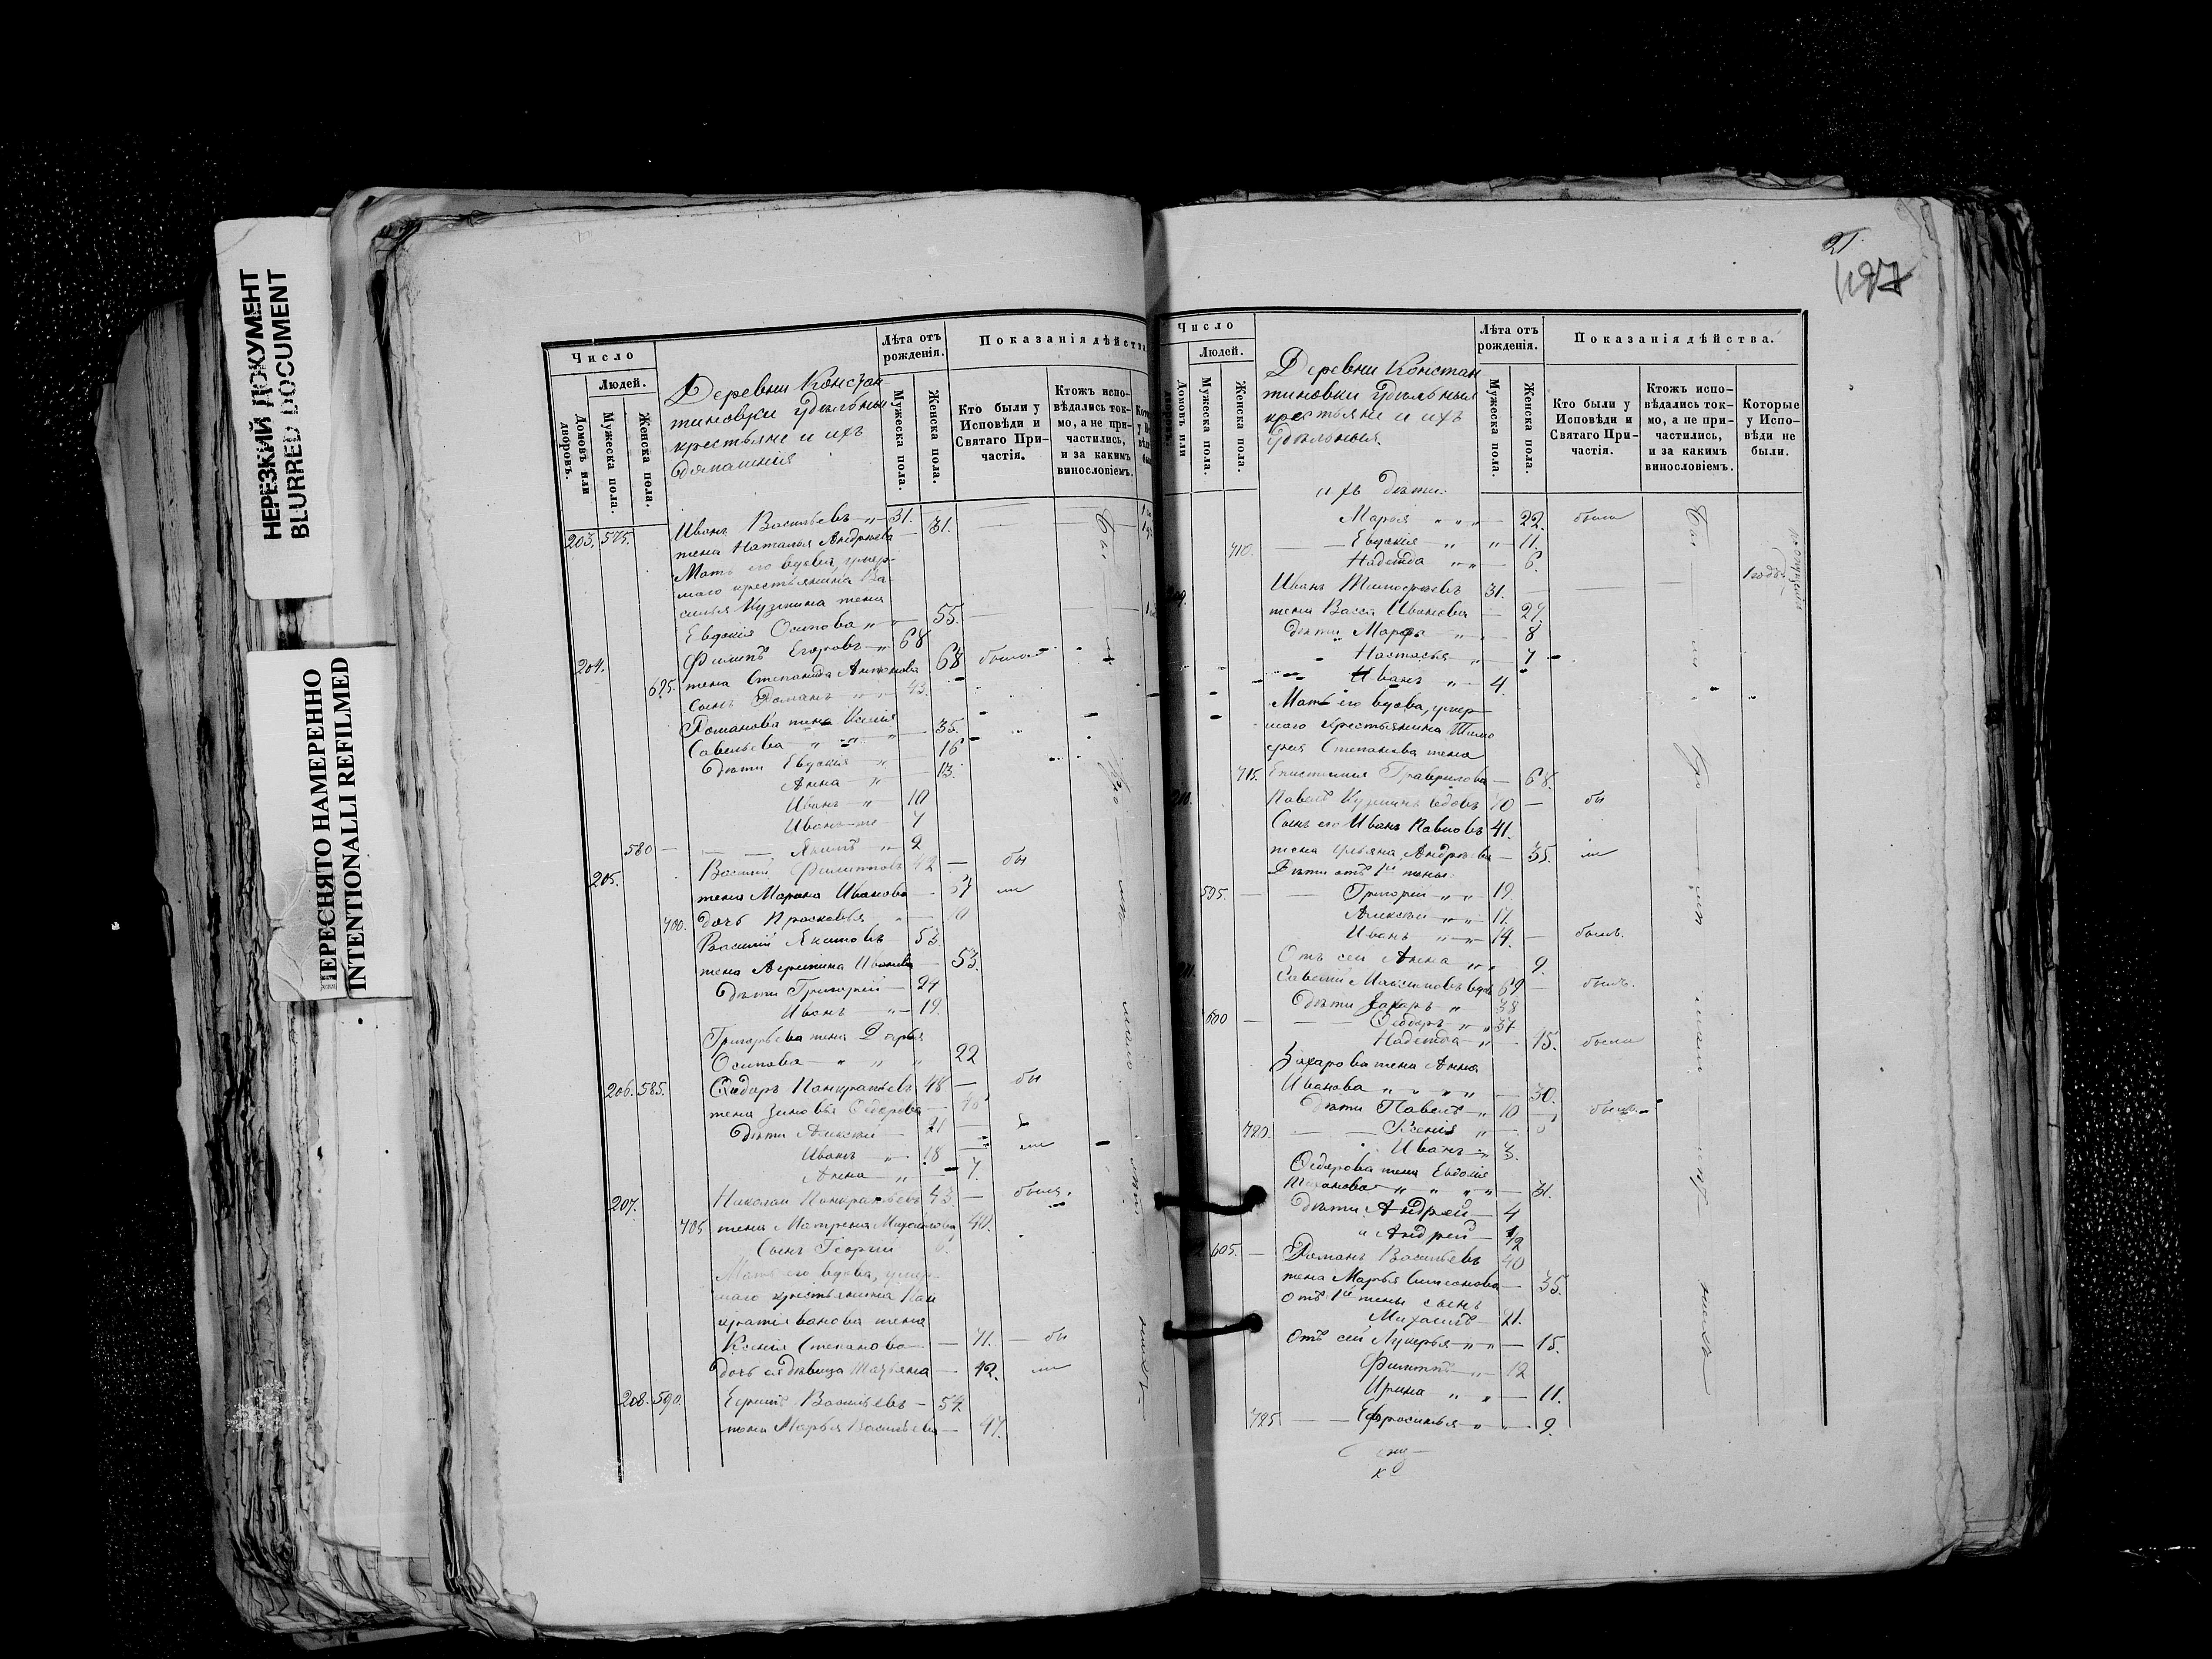 НЕРЕЗКИЙ ДОКУМЕНТ
BLURRED DOCUMENT
ПЕРЕСНЯТО НАМЕРЕННО
INTENTIONALLI REFILMED
Число
Людей.
Домовъ или дворовъ.
Мужеска пола.
Женска пола.
Деревни Констан-
тиновки Удѣльныи
крестьяне и ихъ
домашнія
Лѣта отъ рожденія.
Мужеска пола.
Женска пола.
Показанія дѣйства
Кто были у Исповѣди и Святаго Причастія.
Ктожъ исповѣдались токмо, а не причастились, и за какимъ винословіемъ.
203. 575. Иванъ Васильевъ 31.
жена Наталья Андреева 31.
Мать его вдова, умер-
шаго крестьянина Ва-
силья Кузмина жена
Евдокія Осипова 55.
204. Филипъ Егоровъ 68
695. жена Степанида 68
сынъ Романъ 43.
Романова жена Ксенія
Савельева 35.
дѣти Евдокія 16
Анна 13.
Иванъ 10
Иванъ же 7
580 Якимъ 2
205. Василій Филипповъ 42 бы
жена Марина Иванова 37 ли
700. дочь Прасковья
Василій Якимовъ 53
жена Иванова 53.
дѣти Григорій 24
Иванъ 19.
Григорьева жена Дарья
Осипова 22
206. 585. Ѳедоръ Панкратьевъ 48 бы
жена Зиновья Ѳедорова
дѣти Алексѣй 21
Иванъ 18 ли
Анна 7.
207. Николай Панкратьевъ 43
705 жена Матрена Михайлова 40.
Сынъ Георгій
Мать его вдова, умер-
шаго крестьянина Пан
кратія Иванова жена
Ксенія Степанова 71. бы
дочь ея дѣвица Татьяна 42. ли
208. 590. Ефимъ Васильевъ 54
жена Марья Васильева 47.
21
1127
Число
Людей.
Домовъ или дворовъ.
Мужеска пола.
Женска пола.
Деревни Констан
тиновки Удѣльныя
крестьяне и ихъ
Лѣта отъ рожденія.
Мужеска пола.
Женска пола.
Показанія дѣйства.
Кто были у Исповѣди и Святаго Причастія.
Ктожъ исповѣдались токмо, а не причастились, и за какимъ винословіемъ.
Которые у Исповѣди не были.
ихъ дѣти:
Марья 22. была
710. Евдокія 11.
Надежда 6.
209. Иванъ Тимофѣевъ 31. 1 годъ
жена Васса Иванова 29.
дѣти Марфа 8
Настасья 7
Иванъ 4.
Мать его вдова, умер-
шаго крестьянина Тимо
фея Степанова жена
715. Епистимія Гаврилова 68.
210. Павелъ Кузминъ вдовъ 70 бы
Сынъ его Иванъ Павловъ 41.
жена Ульяна Андреева 35. ли
Дѣти отъ 1й жены:
595. Григорій 19.
Алексѣй 17.
Иванъ 14. былъ.
Отъ сей Анна 9.
211. Савелій Максимовъ вдовъ 69 былъ.
Дѣти Захаръ 38
600 Ѳедоръ 37
Надежда 15. была
Захарова жена Анна
Иванова 30.
Дѣти Павелъ 10 былъ
720. Ксенія
Иванъ 3.
Ѳедорова жена Евдокія
31.
Дѣти Андрей 4
Андрей 1/2
605. Романъ Васильевъ 40
жена Марья Симеонова 35.
Отъ 1й жены сынъ
Михаилъ 21.
Отъ сей Лукерья 15.
Филиппъ 12
Ирина 11.
725 Ефросинья 9.